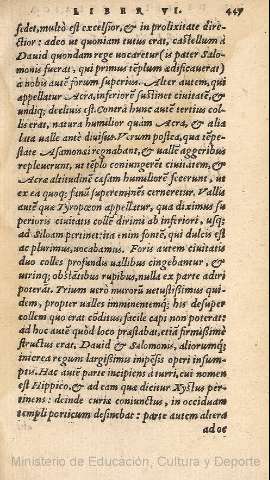 LIBER VI. 447
sedet, multò est excelsior, & in prolixitate dire-
ctior: adeo ut quoniam tutus erat, castellum à
Dauid quondam rege uocaretur (is pater Salo-
monis fuerat, qui primus tẽplum ædificauerat)
à nobis autẽ forum superius. Alter autem, qui
appellatur Acra, inferiorẽ sustinet ciuitatẽ, &
undiq; decliuis est. Contrà hunc autẽ tertius col-
lis erat, natura humilior quàm Acra, & alia
lata ualle antè diuisus. Verum postea, qua tẽpe-
state Asamonæi regnabant, & uallẽ aggeribus
repleuerunt, ut tẽplo coniungerẽt ciuitatem, &
Acræ altitudinẽ cæsam humiliorẽ fecerunt, ut
ex ea quoq; fanũ supereminẽs cerneretur. Vallis
autẽ quæ Tyropœon appellatur, qua diximus su
perioris ciuitatis collẽ dirimi ab inferiore, usq;
ad Siloam pertinet: ita enim fontẽ, qui dulcis est
ac plurimus, uocabamus. Foris autem ciuitatis
duo colles profundis uallibus cingebantur, &
utrinq; obstãtibus rupibus, nulla ex parte adiri
poterãt. Trium uerò murorũ uetustissimus qui-
dem, propter ualles imminentemq; his desuper
collem quo erat cõditus, facile capi non poterat:
ad hoc autẽ quòd loco præstabat, etiã firmissimè
structus erat, Dauid & Salomonis, aliorumq;
inierea regum largissimis impẽsis operi insum-
ptis. Hac autẽ parte incipiens à turri, cui nomen
est Hippico, & ad eam quæ dicitur Xystus per-
tinens: deinde curiæ coniunctus, in occiduam
templi porticum desinebat: parte autem altera
ad oc
Ministerio de Educación, Cultura y Deporte